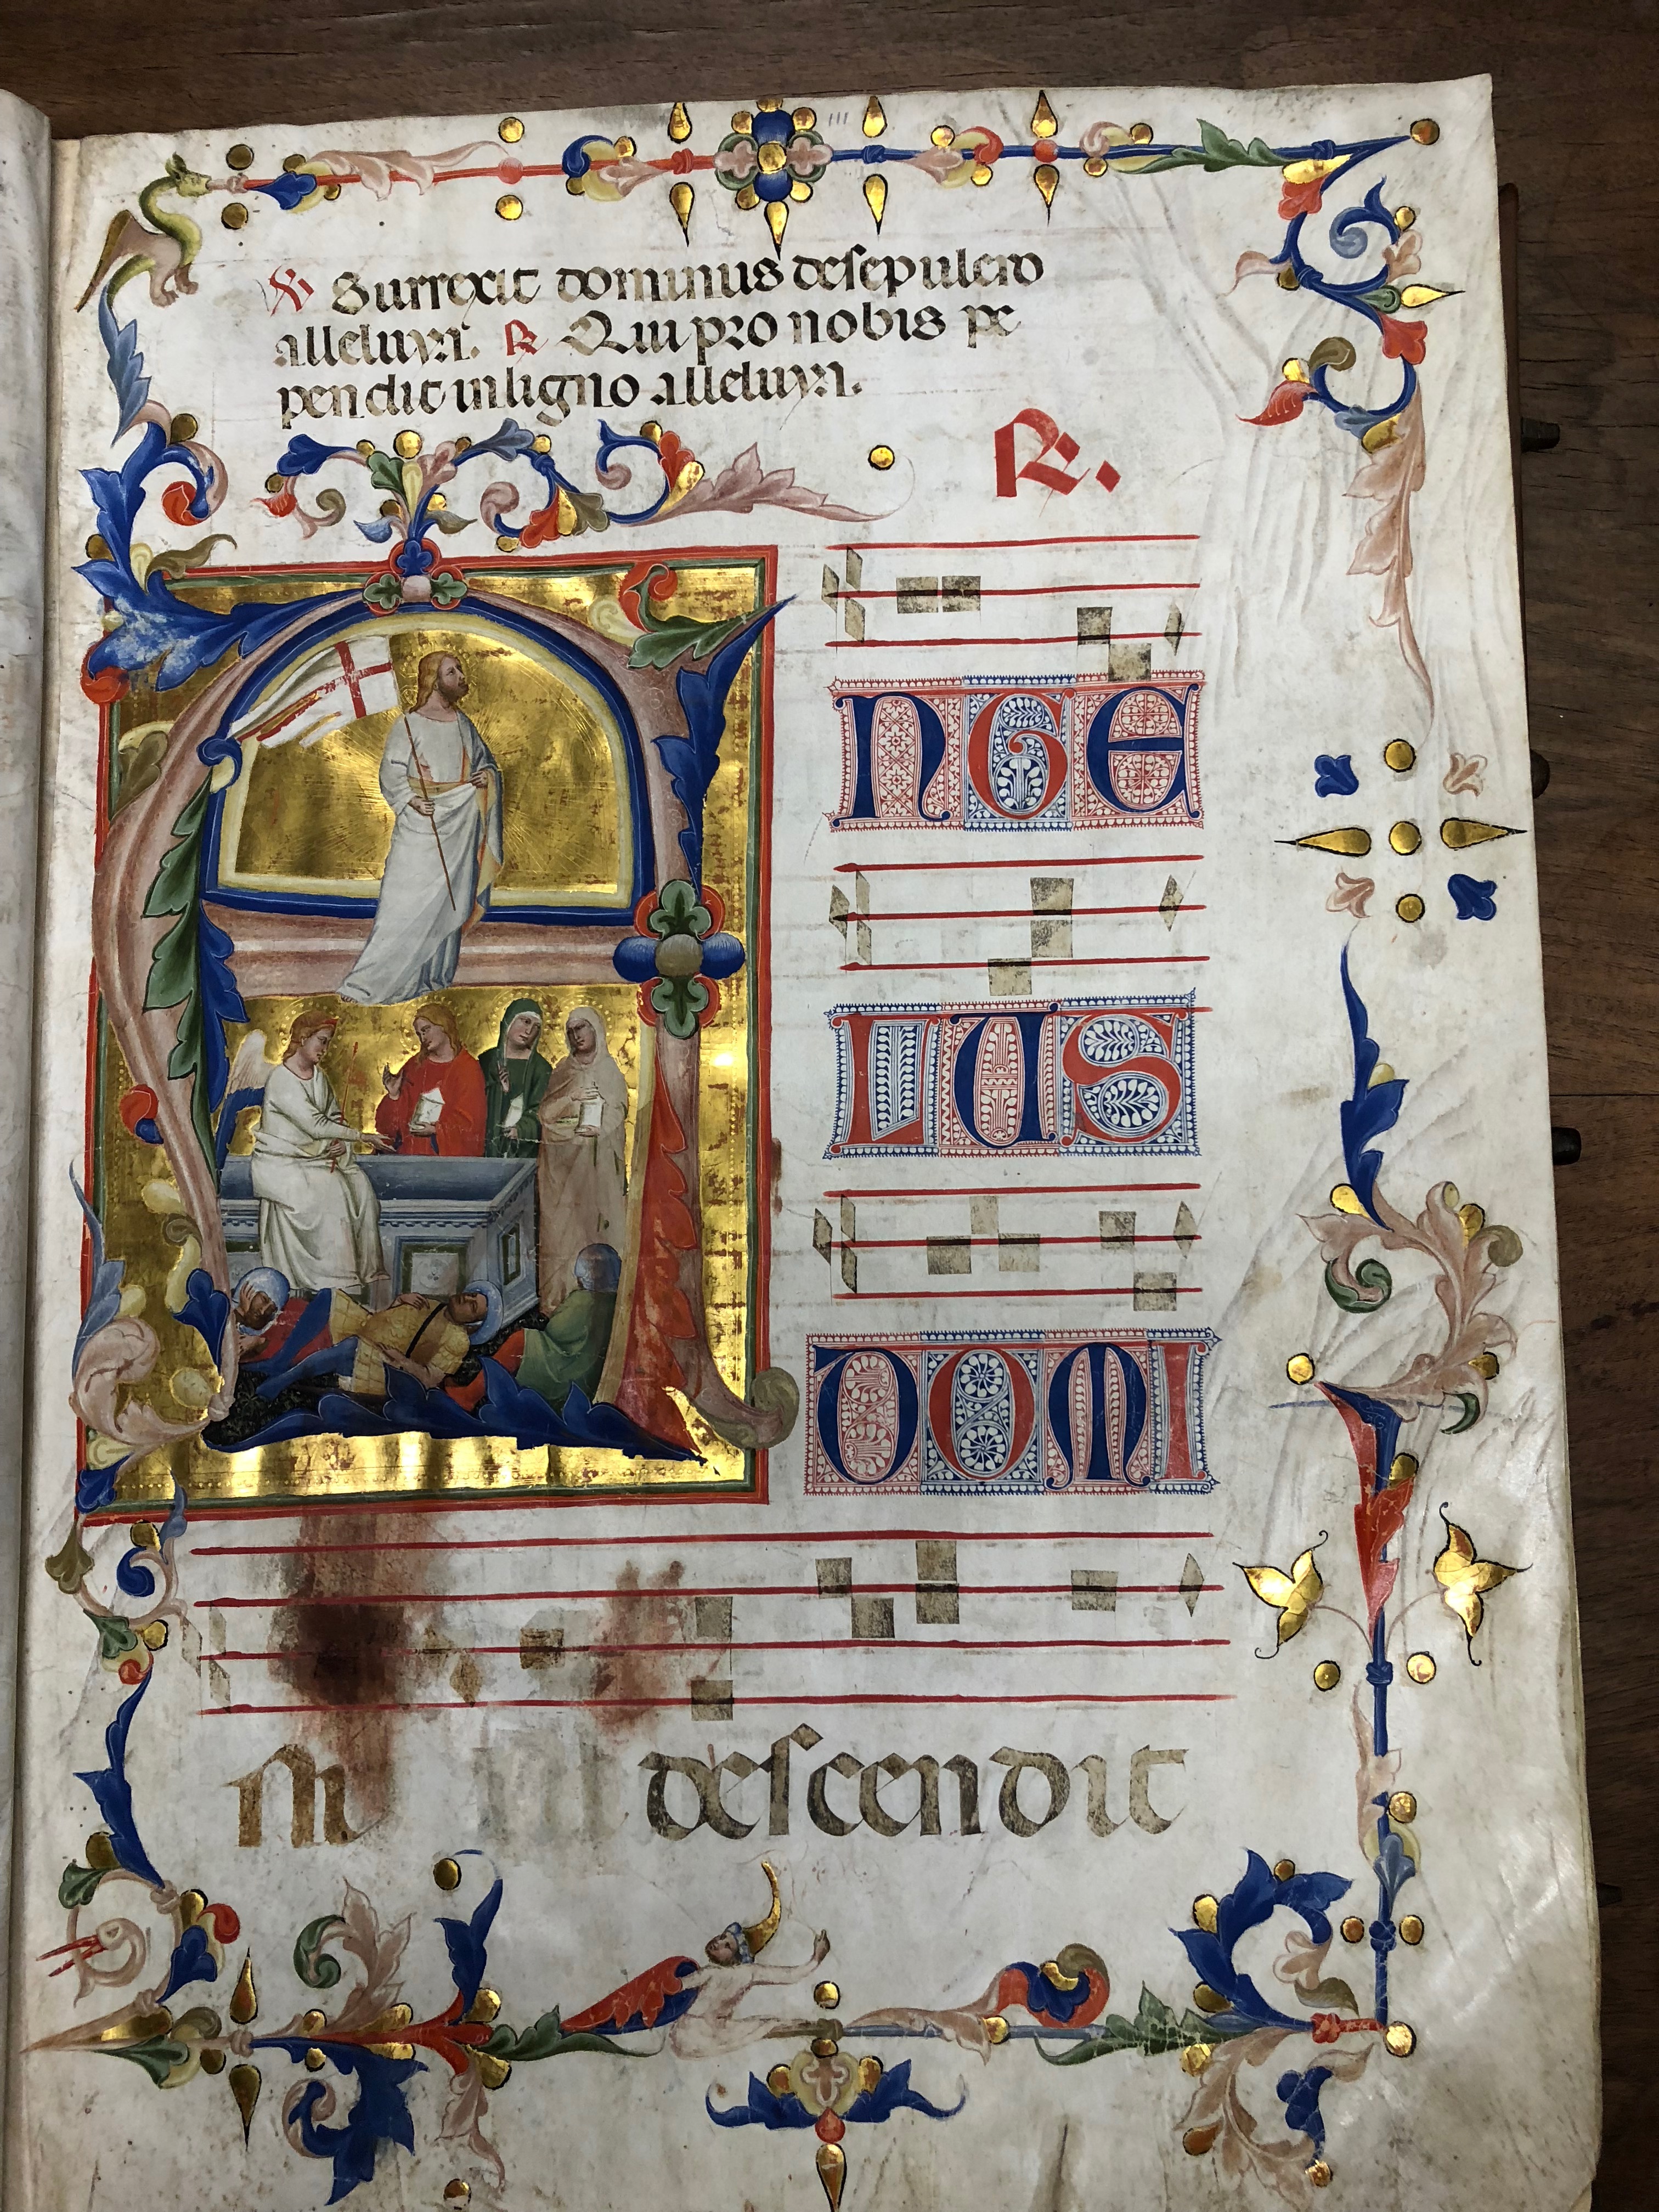 ℣ Surrexit dominus desepulcro
alleluya. ℟ Qui pro nobis pe
pendit in ligno alleluya.
℟.
A NGE
LUS
DOMI
ni descendit